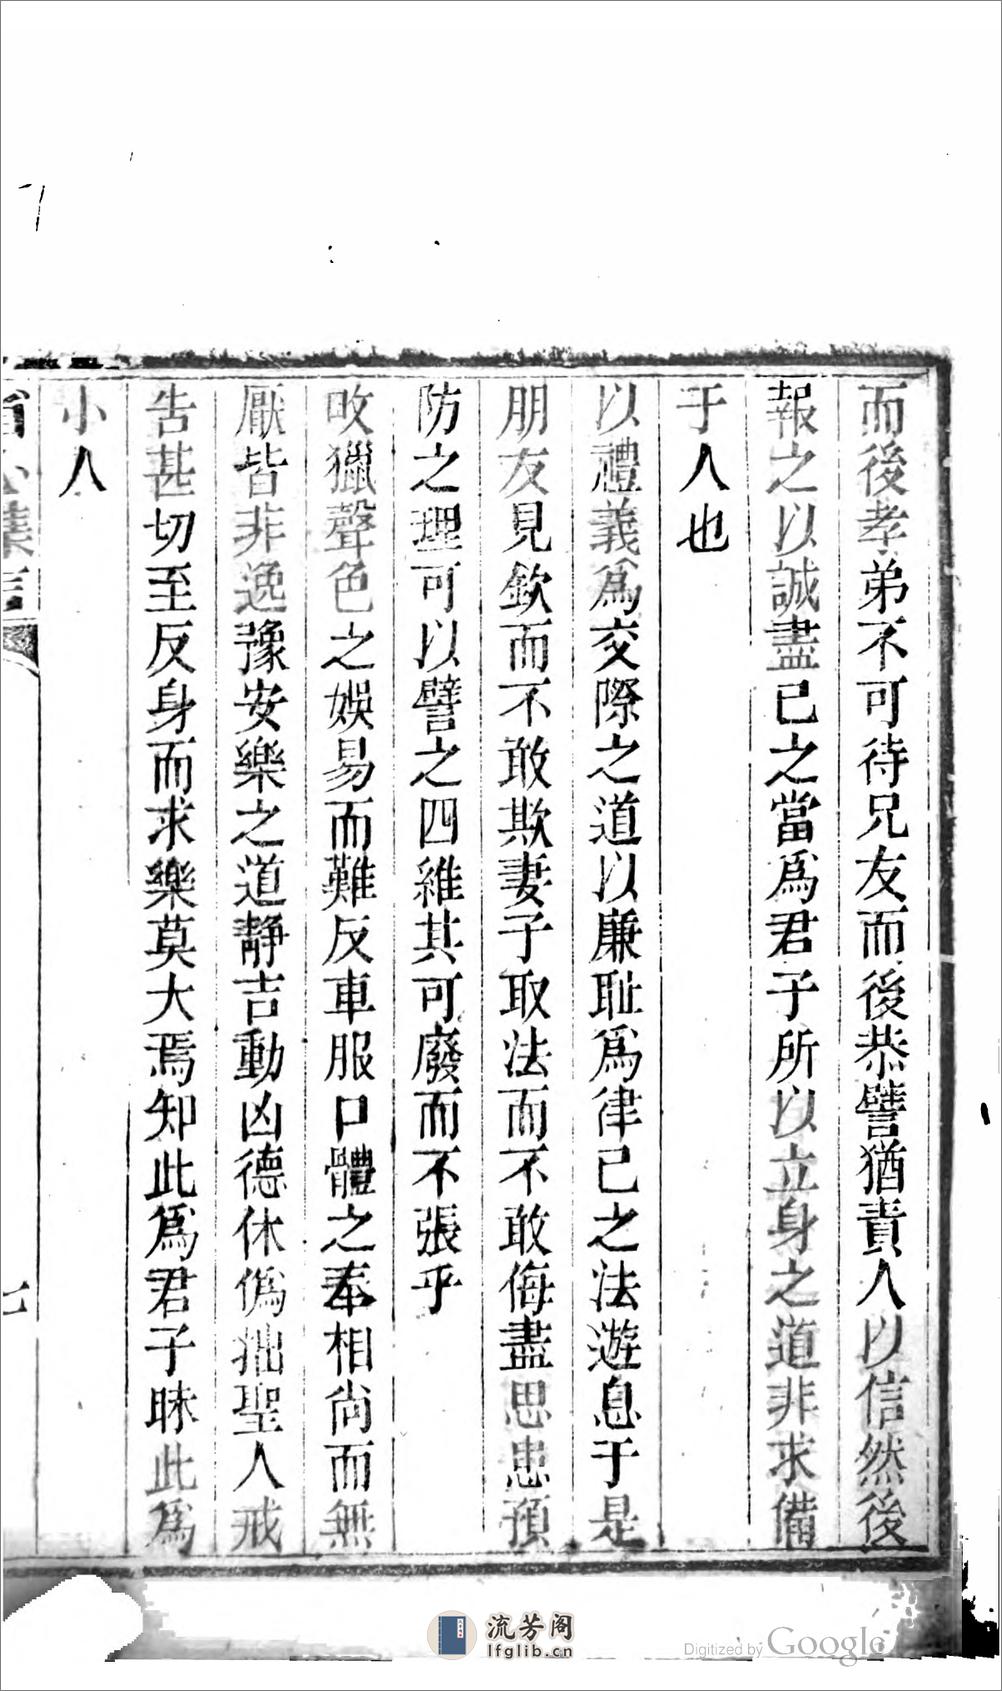 而後孝弟不可待兄友而後恭譬猶責人以信然後
報之以誠盡已之當爲君子所以立身之道非求備
于人也
以禮義爲交際之道以廉耻爲律已之法遊息于是
朋友見欽而不敢欺妻子取法而不敢侮盡思患預
防之理可以譬之四維其可廢而不張乎
畋獵聲色之娛易而難反車服口體之奉相尚而無
厭皆非逸豫安樂之道靜吉動凶德休僞拙聖人戒
吿甚切至反身而求樂莫大焉知此爲君子昧此爲
小人
七
流芳阁
lfglib.cn
Digitized by Google